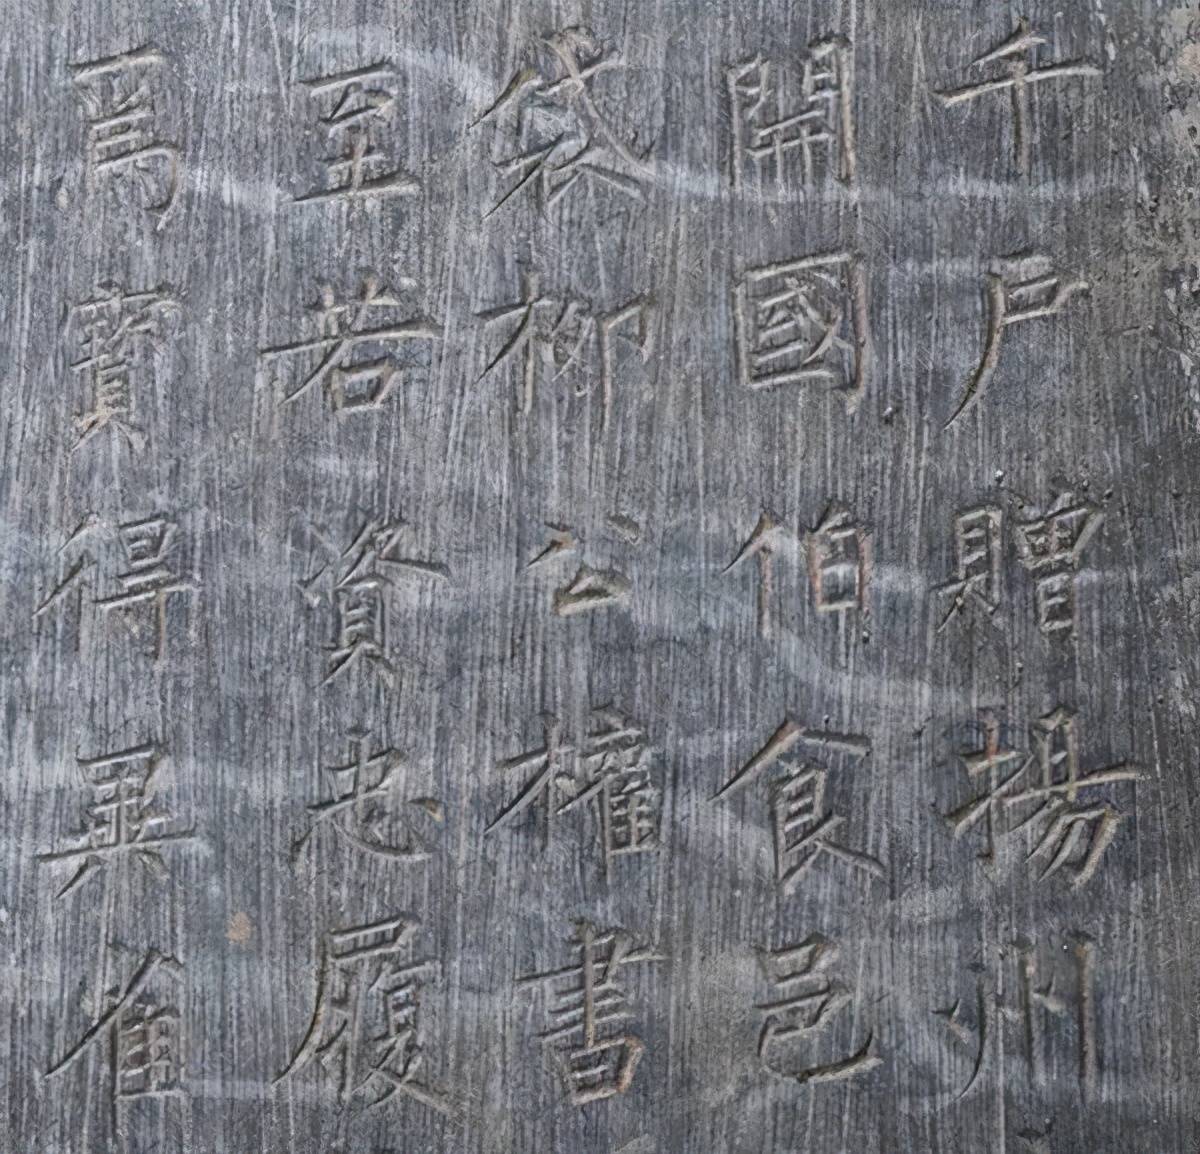 千户贈揚州
開國伯食邑
袋柳公權書
至若資忠履
爲寳得異隹